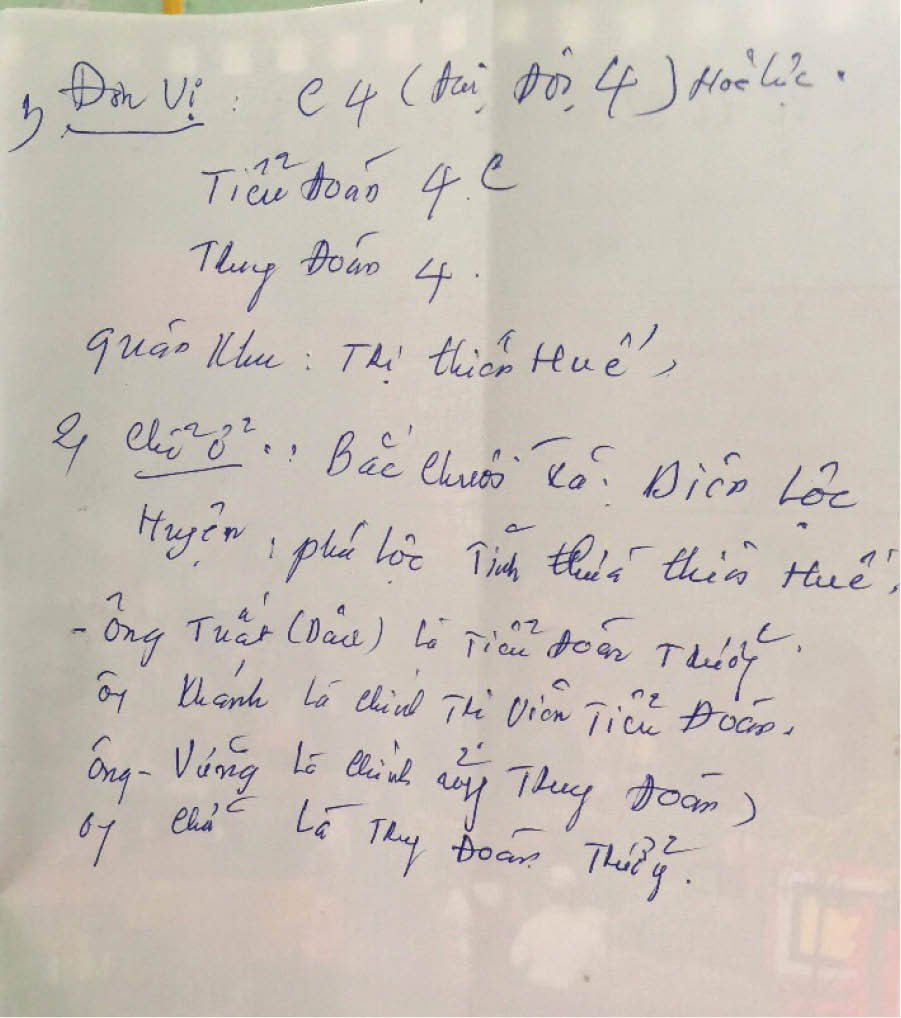 1) Đơn Vị: C4 (Đại Đội 4) Hoả lực.
Tiểu Đoàn 4.C
Trung Đoàn 4.
Quân Khu: Trị thiên Huế,
2) Chỗ ở: Bắc Chước Xã: Điền Lộc
Huyện: phú lộc Tỉnh thừa thiên Huế,
- Ông Tuất (Dâu) là Tiểu Đoàn Trưởng.
ông Khánh là chính Trị Viên Tiểu Đoàn,
ông - Vững là chính ủy Trung Đoàn)
ông là Trung Đoàn Trưởng.